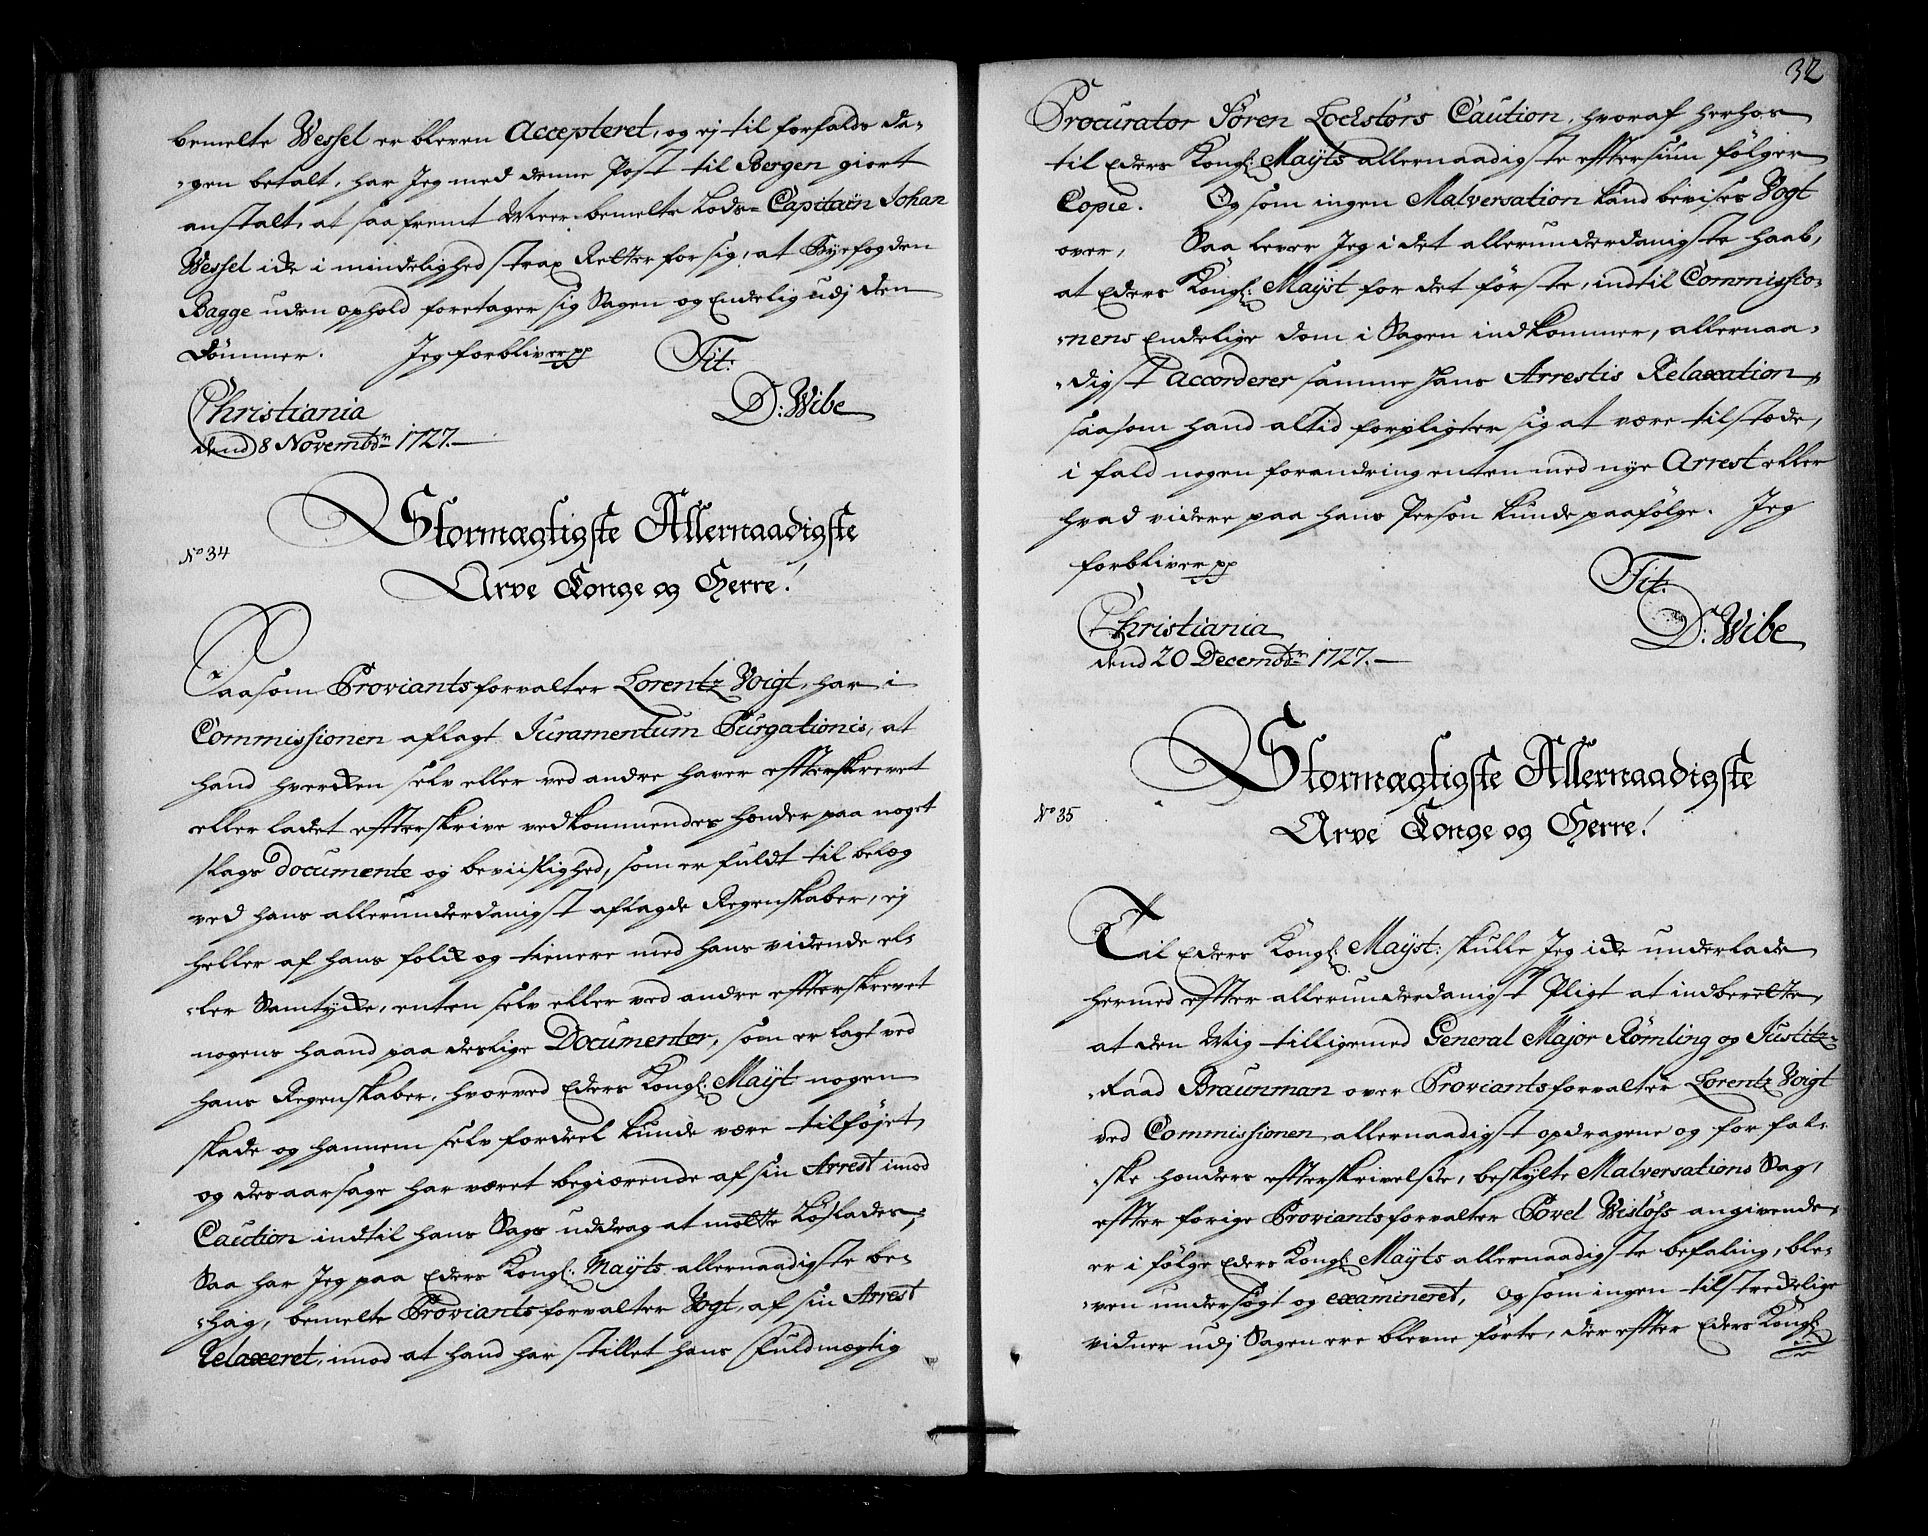 bemelte Wessel er bleven Accepteret, og ej til forfalds da-
-gen betalt, har Jeg med denne Post til Bergen giort
anstalt, at saa fremt Meer-bemelte Lods-Capitain Johan
Wessel icke i mindelighed strax Retter for sig, at Byefogden
Bagge uden ophold foretager sig Sagen og Endelig udj den
Dømmer. Jeg forbliver pp Tit:
D: Wibe
Christiania
dend 8 Novembr 1727.
No 34
Stormægtigste Allernaadigste
Arve Konge og Herre!
Saasom Proviantsforvalter Lorentz Voigt, har i
Commissionen aflagt Juramentum Purgationis, at
hand hvercken selv eller ved andre haver effterskrevet
eller ladet effterskrive vedkommendes hænder paa noget
slags documente og beviislighed, som er fuldt til belæg
ved hans allerunderdanigst aflagde Regenskaber, ej
heller af hans folck og tienere med hans vidende el-
-ler Samtycke, enten selv eller ved andre effterskrevet
nogens haand paa deslige Documenter, som er lagt ved
hans Regenskaber, hvorved Eders Kongl: Mayt nogen
skade og hannem selv fordeel kunde være tilføjet,
og desaarsage har været begiærende af sin Arrest imod
Caution indtil hans Sags uddrag at motte Løslades,
Saa har Jeg paa Eders Kongl: Mayts allernaadigste be-
-hag, bemelte Proviantsforvalter Vogt, af sin Arrest
Relaxeret, imod at hand har stillet hans Fuldmægtig
32
Procurator Søren Lockstørs Caution, hvoraf herhos
til Eders Kongl: Mayts allernaadigste efftersiun følger
Copie. Og som ingen Malversation kand bevises Vogt
over, Saa lever Jeg i det allerunderdanigste haab,
at Eders Kongl: Mayst for det første, indtil Commissio-
-nens Endelige dom i Sagen indkommer, allernaa-
-digst Accorderer samme hans Arrestis Relaxation,
saasom hand altid forpligter sig at være tilstæde,
i fald nogen forandring enten med nye Arrest eller
hvad videre paa hans Person kunde paafølge. Jeg
forbliver pp
Tit:
D: Wibe
Christiania
dend 20 Decembr 1727.
No 35
Stormægtigste Allernaadigste
Arve Konge og Herre!
Til Eders Kongl: Mayst: skulle Jeg icke underlade
hermed effter allerunderdanigst Pligt at indberette,
at den Mig tilligemed General Major Rømling og Justitz-
-Raad Braunman over Proviantsforvalter Lorentz Voigt
ved Commissionen allernaadigst opdragene og for fal-
-ske hænders effterskrivelse, beskylte Malversations Sag,
effter forige Proviantsforvalter Povel Wisløfs angivende,
er i følge Eders Kongl: Mayts allernaadigste befaling, ble-
-ven undersøgt og examineret, Og som ingen tilstrekelige
vidner udj Sagen ere blevne førte, der effter Eders Kongl: